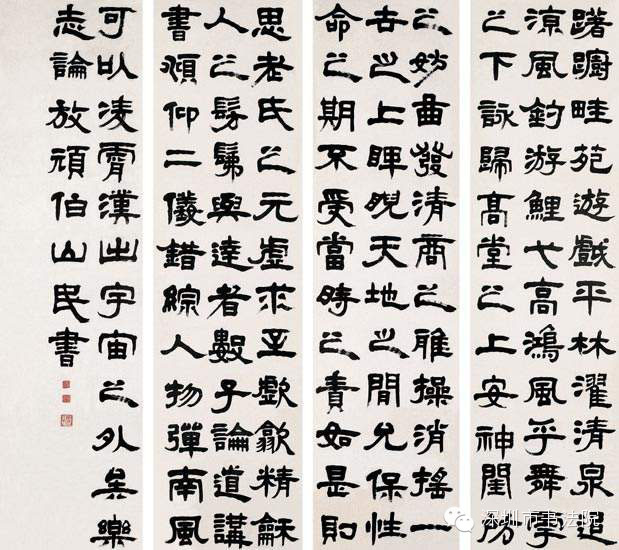 躇躕畦苑遊戲平林濯清泉追
涼風釣游鯉弋高鴻風乎舞雩
之下詠歸高堂之上安神閨房
之妙曲發清商之雅操消搖一
古之上睥睨天地之閒允保性
命之期不受當時之責如是則
思老氏之元虛求至歔歙精龢
人之髣髴與達者數子論道講
書頫仰二儀錯綜人物彈南風
可以凌霄漢出宇宙之外矣樂
志論放頑伯山民書
深圳市书法院